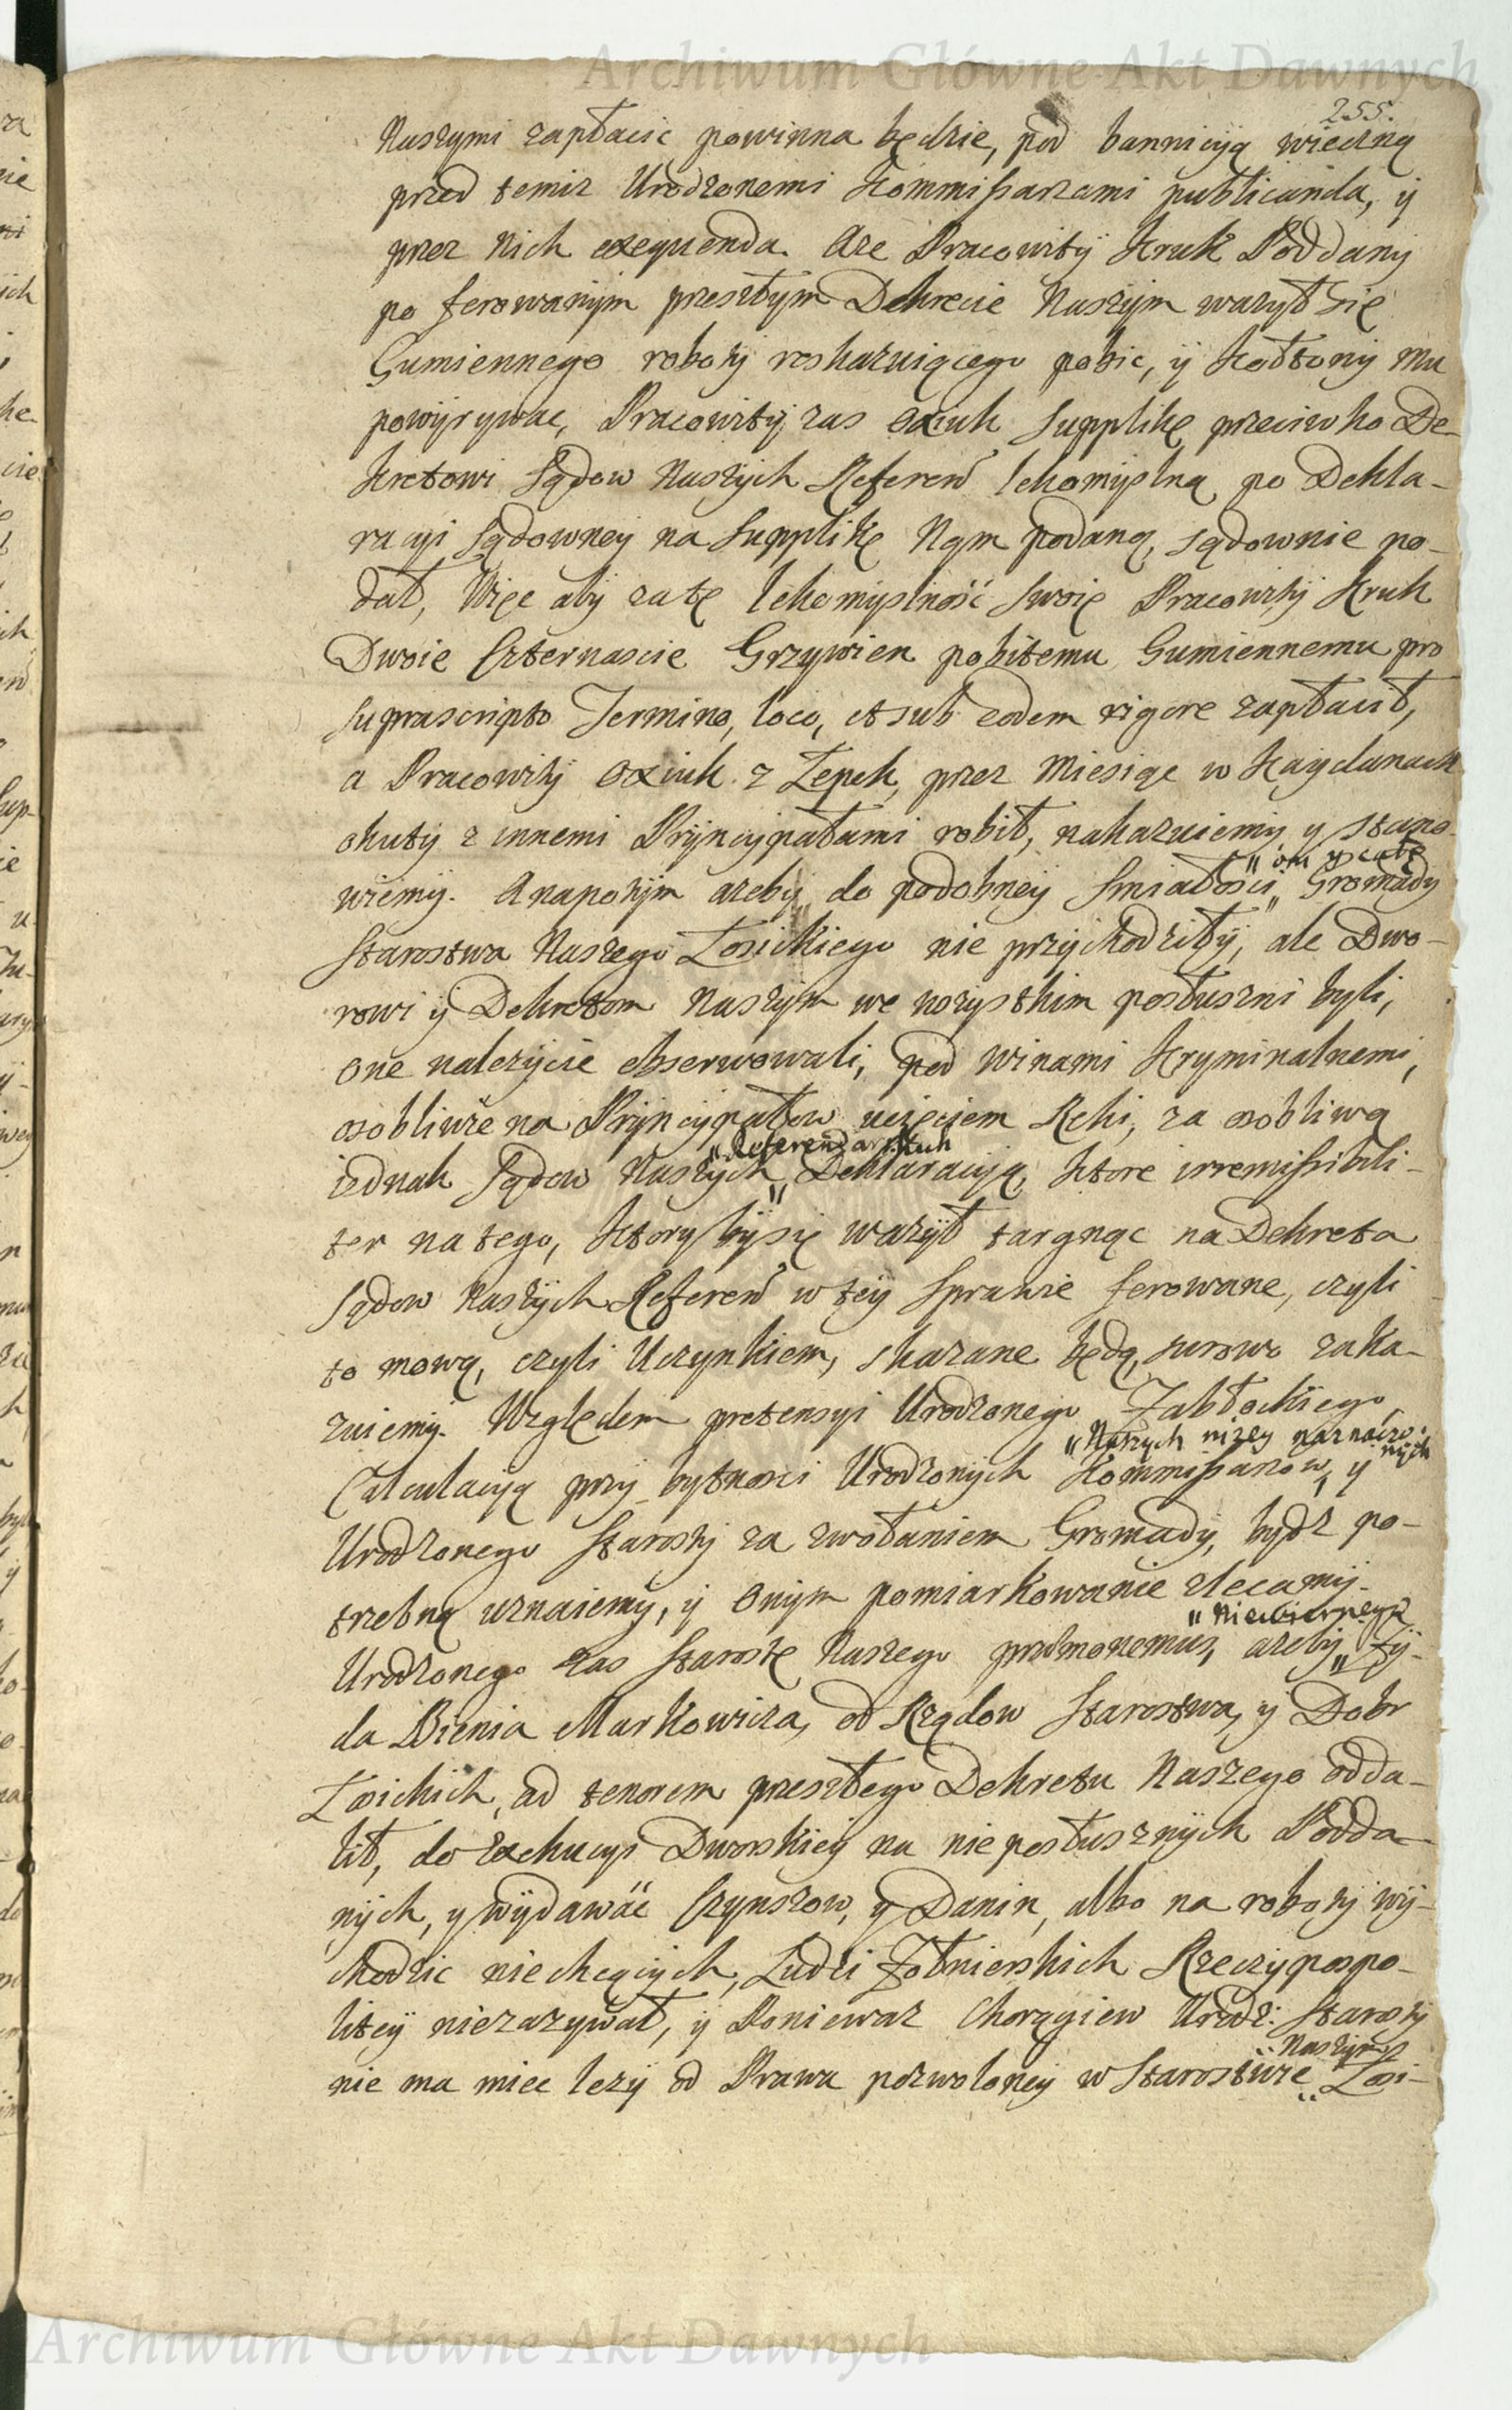 Archiwum Główne Akt Dawnych
255.
Naszymi zapłacic powinna będzie, pod bannicyą wieczną
przed temiz Urodzonemi Kommissarzami publicanda, y
przez nich exequenda. Aze Pracowity Kruk Poddany
po ferowanym przeszłym Dekrecie Naszym wazył się
Gumiennego roboty roskazuiącego pobic, y Kołtony mu
powyrywac, Pracowity zas Oxiuk Supplikę przeciwko De-
kretowi Sądow Naszych Referen lekomyslną po Dekla-
racyi Sądowney na Supplikę Nąm podaną, sądownie po-
dał, Więc aby za tę lekomyslność swoię Pracowity Kruk
Dwoie Czternascie Grzywien pobitemu Gumiennemu pro
suprascripto Termino, loco, et sub eodem rigore zapłacił,
a Pracowity Oxiuk z Łepek, przez Miesiąc w Kaydanach
okuty z innemi Pryncypałami robił, nakazuiemy y stano-
"om y całey
wiemy. A napotym azeby do podobney smiałości" Gromady
Starostwa Naszego Łosickiego nie przychodziły, ale Dwo-
rowi y Dekretom Naszym we wszystkim posłuszni byli,
one nalezycie obserwowali, pod winami Kryminalnemi,
osobliwie na Pryncypałow ucięciem Ręki, za osobliwą
"Referendarskich
iednak Sądow Naszych" Deklaracyą, ktore irremissibili-
ter na tego, ktory by się wazył targnąc na Dekreta
Sądow Naszych Referen w tey Sprawie ferowane, czyli
to mową, czyli Uczynkiem, skazane będą, surowo zaka-
zuiemy. Względem pretensyi Urodzonego Zabłockiego
"Naszych nizey naznaczo-
nych
Calculacyą przy bytnosci Urodzonych Kommissarzow, y
Urodzonego Starosty za zwołaniem Gromady, bydz po-
trzebną uznaiemy, y onym pomiarkowanie zlecamy.
"Niewiernego
Urodzonego zas Starostę Naszego praemonemus, azeby" Zy-
da Bienia Markowicza, od Rządow Starostwa, y Dobr
Łosickich, ad tenorem przeszłego Dekretu Naszego odda-
lił, do Exekucyi Dworskiey na nieposłusznych Podda-
nych, y wydawać Czynszow, y Danin, albo na roboty wy-
chodzic niechcących, Ludzi Zołnierskich Rzeczypospo-
litey niezazywał, y Poniewaz Chorągiew Urodz: Starosty
Naszym
nie ma miec lezy od Prawa pozwoloney w Starostwie" Łosi-
Archiwum Główne Akt Dawnych